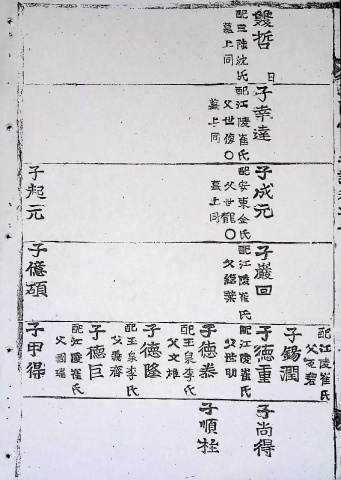 哲
配三陟沈氏
墓上同
子幸達
配江陵崔氏
父世俊
墓上同
子成元
配安東金氏
父世龍
墓上同
子起元
子嚴回
配江陵崔氏
子億碩
配江陵崔氏
子錫潤
子德重
配江陵崔氏
父世明
子德泰
配玉泉李氏
父文雄
子德隆
配玉泉李氏
父義齊
子德巨
配江陵崔氏
父國瑞
子甲得
子尚得
子順程